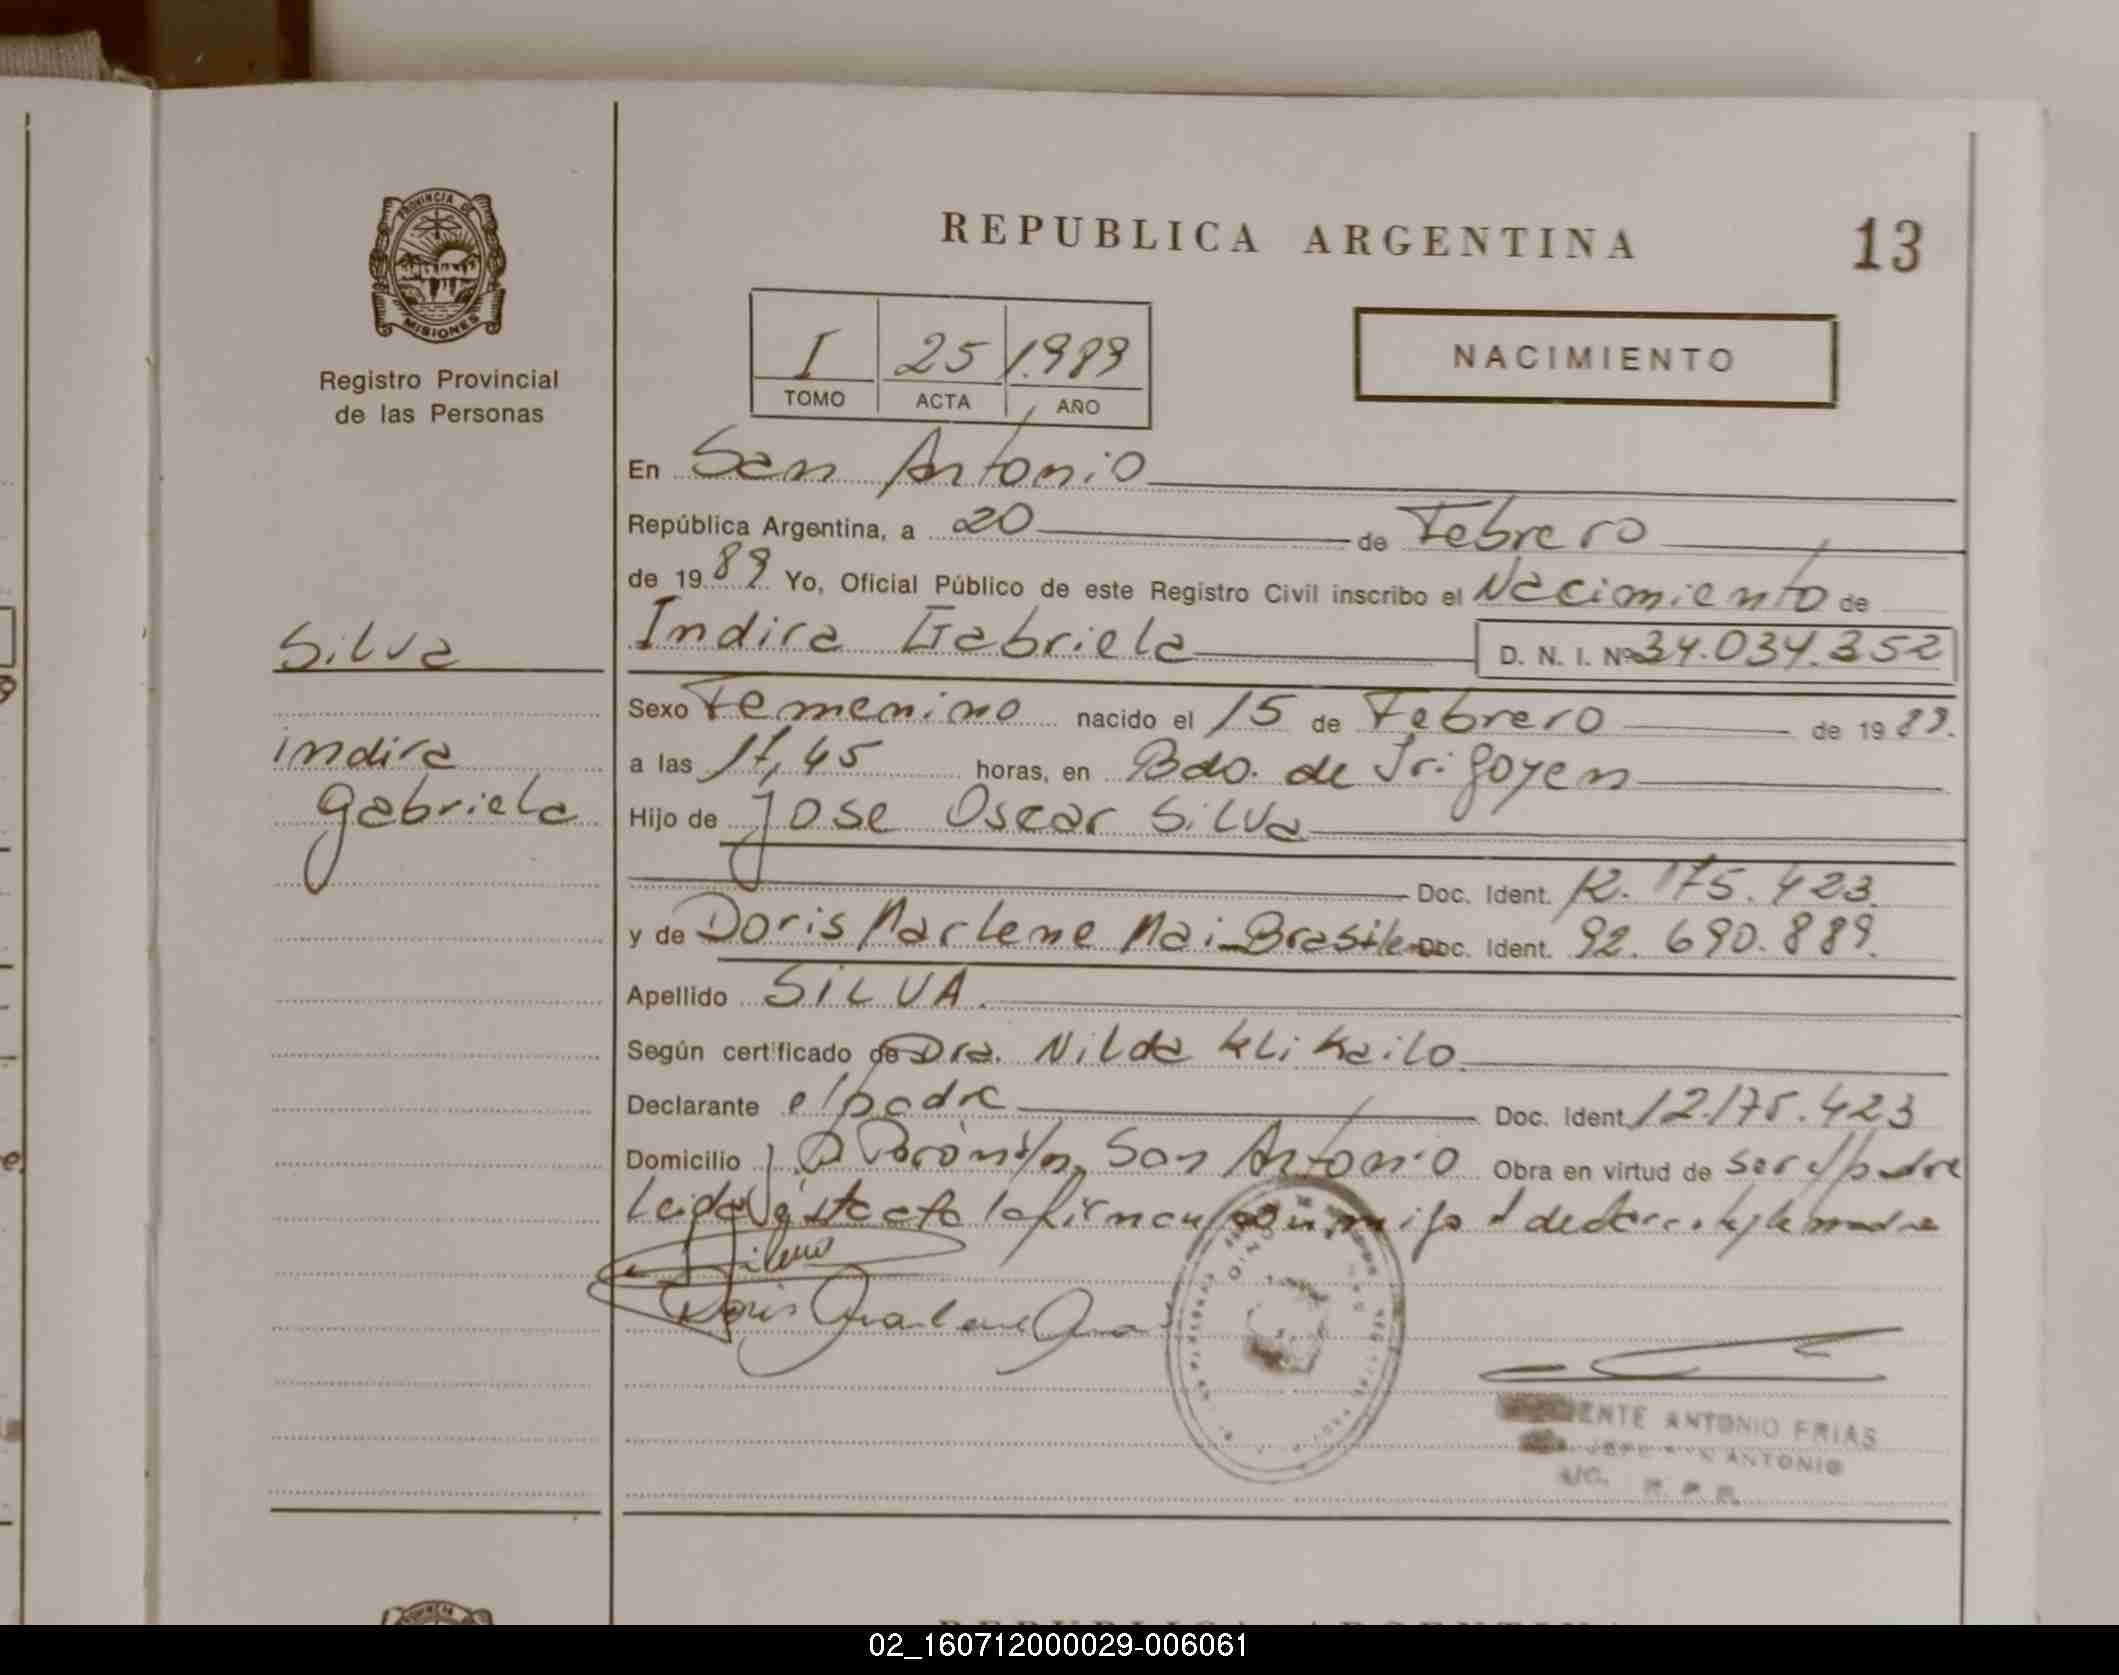 PROVINCIA DE
MISIONES
Registro Provincial
de las Personas
Silva
indira
gabriela
REPUBLICA ARGENTINA
13
I 25 1.989
TOMO ACTA AÑO
NACIMIENTO
En San Antonio
República Argentina, a 20 de Febrero
de 1989 Yo, Oficial Público de este Registro Civil inscribo el Nacimiento de
Indira Gabriela D. N. I. Nº 34.034.352
Sexo Femenino nacido el 15 de Febrero de 1989.
a las 11,45 horas, en Bdo. de Irigoyen
Hijo de Jose Oscar Silva
Doc. Ident. 12.175.423.
y de Doris Marlene Mai-Brasilera Doc. Ident. 92.690.889.
Apellido SILVA.
Según certificado de Dra. Nilda Klikailo
Declarante el padre Doc. Ident 12.175.423
Domicilio San Antonio Obra en virtud de ser el padre
Leida ésta acta la firman conmigo el declarante y la madre
Silva
Doris Marlene Mai
ENTE ANTONIO FRIAS
JEFE SAN ANTONIO
A/C. R. P. P.
REPUBLICA ARGENTINA
02_160712000029-006061